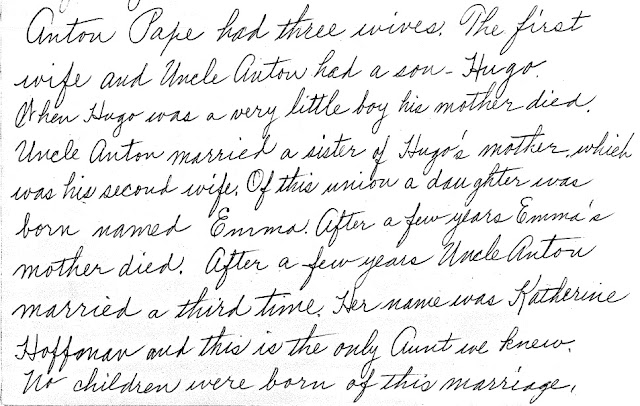 Anton Pape had three wives. The first
wife and Uncle Anton had a son - Hugo.
When Hugo was a very little boy his mother died.
Uncle Anton married a sister of Hugo's mother, which
was his second wife. Of this union a daughter was
born named Emma. After a few years Emma's
mother died. After a few years Uncle Anton
married a third time. Her name was Katherine
Hoffman and this is the only Aunt we knew.
No children were born of this marriage.